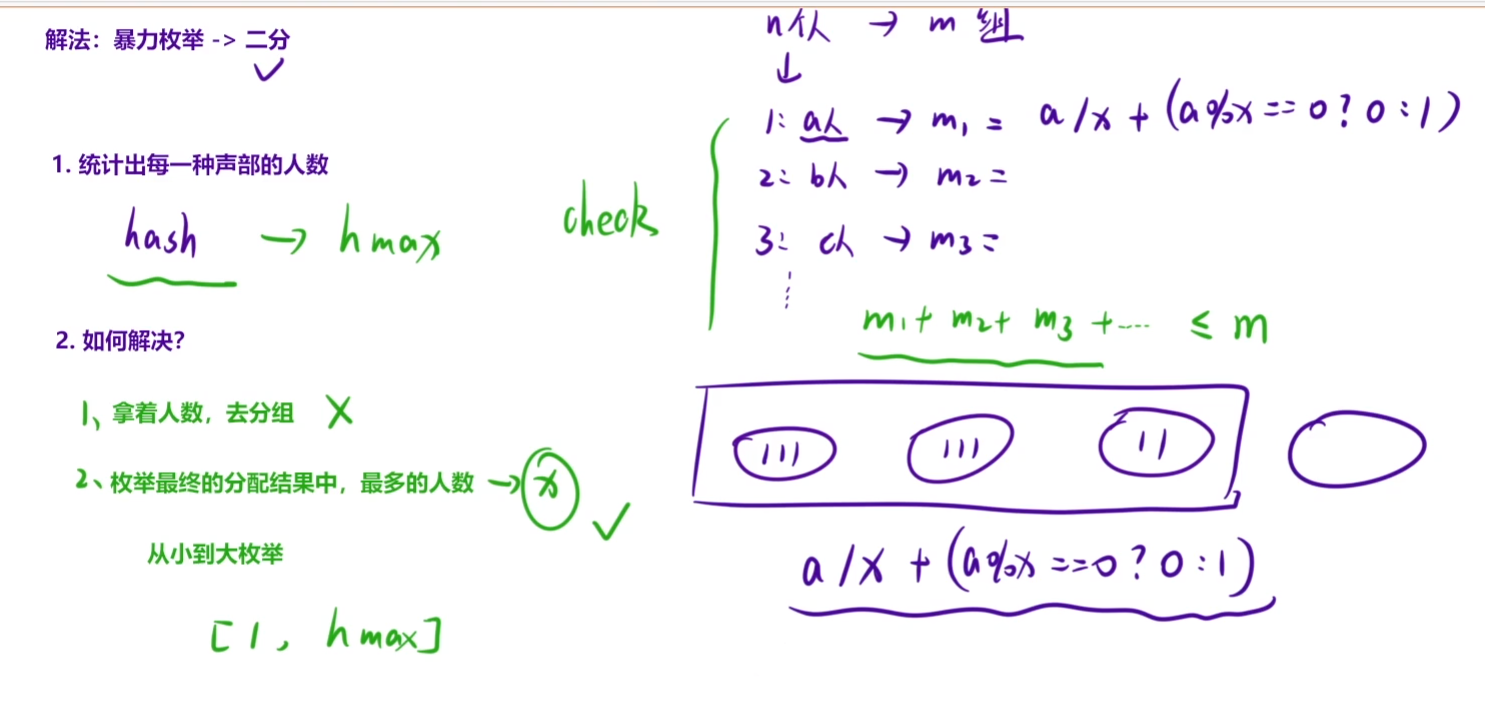 解法：暴力枚举 -> 二分
1. 统计出每一种声部的人数
hash → hmax
2. 如何解决？
1、拿着人数，去分组 X
2、枚举最终的分配结果中，最多的人数 → x
从小到大枚举
[1, hmax]
n个人 → m 组
↓
check
1: a人 → m1 = a/x + (a%x == 0 ? 0 : 1)
2: b人 → m2 =
3: c人 → m3 =
⋮
m1 + m2 + m3 + .... ≤ m
||| ||| ||
a/x + (a%x == 0 ? 0 : 1)